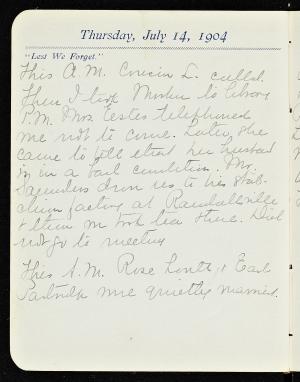 Thursday, July 14, 1904
"Lest We Forget."
This A.M. Cousin L. called.
Then I took Mother to library
P.M. Mrs. Estes telephoned
me not to come. Later, she
came to tell that her husband
is in a bad condition. Mr.
Saunders drove us to his
factory at Randallville
& then took tea there. Did
not go to meeting
This A.M. Rose & Earl
were quietly married.